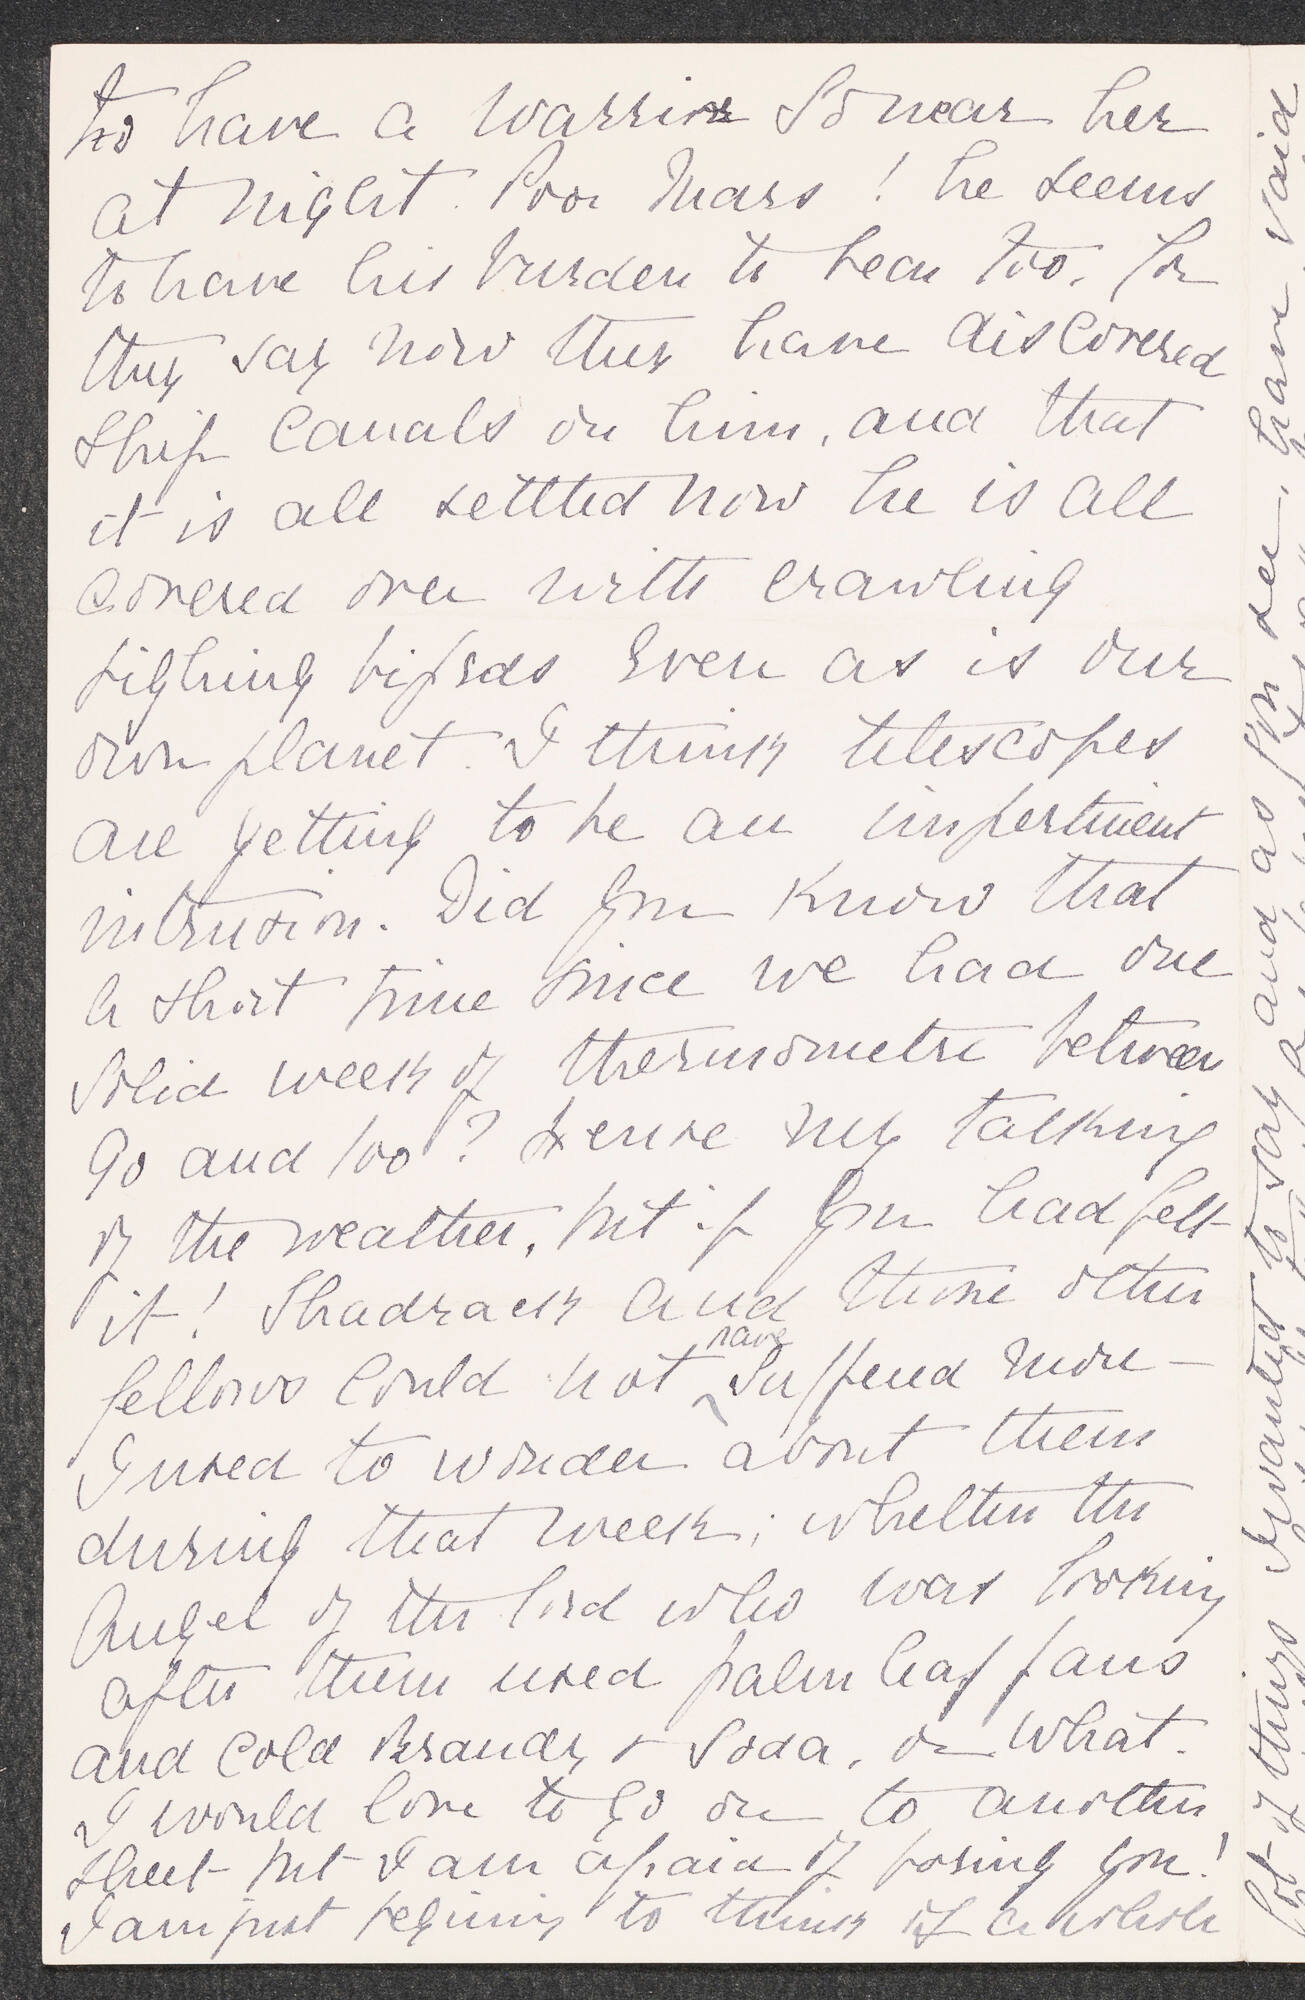 to have a warrior so near her
at night. Poor Mars! he seems
to have his burden to bear too. for
they say now they have discovered
ship canals on him, and that
it is all settled now he is all
covered over with crawling
fighting bipeds even as is our
own planet. I think telescopes
are getting to be an impertinent
intrusion. Did you know that
a short time since we had one
solid week of thermometre between
90 and 100? Excuse my talking
of the weather, but if you had felt
it! Shadrack and those other
fellows could not have suffered more –
I used to wonder about them
during that week; whether the
Angel of the Lord who was looking
after them used palm leaf fans
and cold Brandy & Soda, or what.
I would love to go on to another
sheet but I am afraid of boring you!
I am just begining to think of a whole
lot of things I wanted to say and as you see, have said